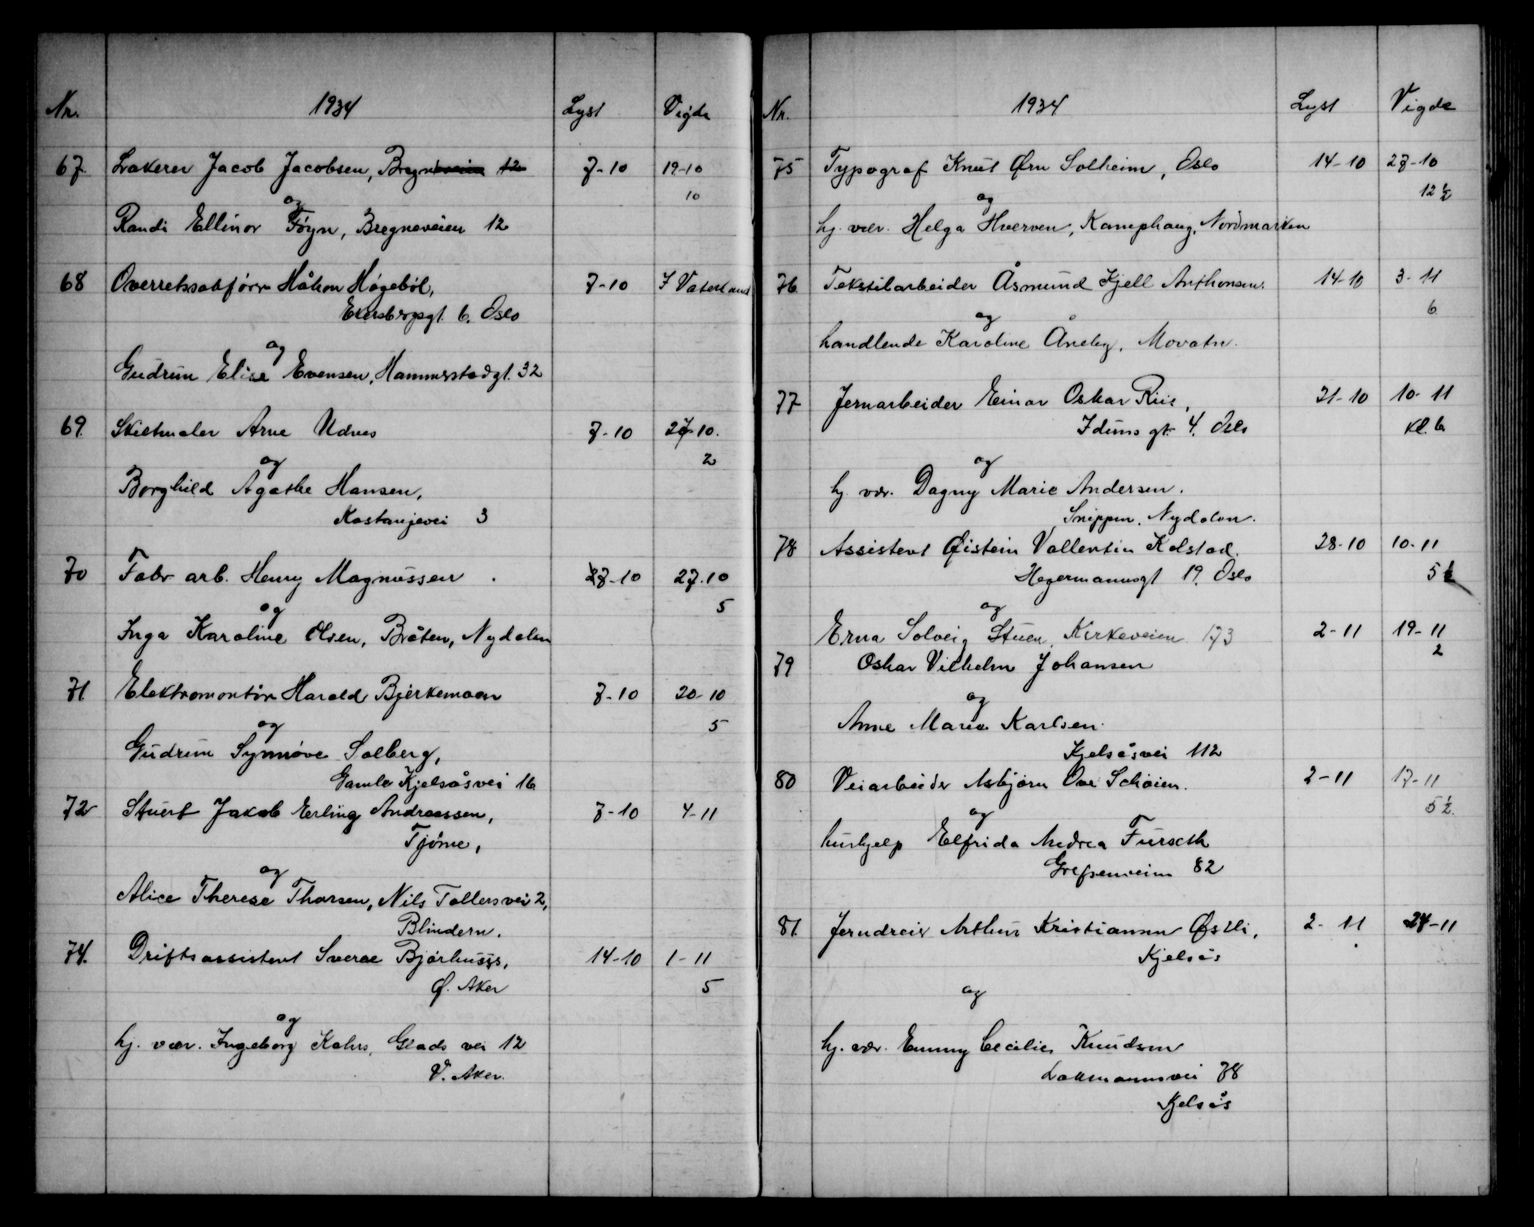 Nr. 1934 Lyst Vigde
67. Lakerer Jacob Jacobsen, Bregneveien 12 7-10 19-10
og 10
Randi Ellinor Föyn, Bregneveien 12
68 Overretssakförer Håkon Högeböl, 7-10 I Vaterland
Ekersbergsgt. 6. Oslo
og
Gudrun Elise Evensen, Hammerstadgt. 32
69. Skiltmaler Arne Udnes 7-10 27-10.
og 2
Borghild Agathe Hansen,
Kastanjevei 3
70 Fabr arb. Henry Magnussen . 7-10 27.10
og 5
Inga Karoline Olsen, Bråten, Nydalen
71 Elektromontör Harald Bjerkemoen 7-10 20-10
og 5
Gudrun Synnöve Solberg,
Gamle Kjelsåsvei 16
72 Stuert Jakob Erling Andreassen, 7-10 4-11
Tjöme,
og
Alice Therese Thorsen, Nils Tollersvei 2,
Blindern.
74. Driftsassistent Sverre Björhuss, 14-10 1-11
Ö. Aker 5
og
hj. vær. Ingeborg Kahrs, Glads vei 12
V. Aker.
Nr. 1934 Lyst Vigde
75 Typograf Knut Örn Solheim, Oslo 14-10 27-10
og 12 1/2
hj. vær. Helga Hverven, Kamphaug, Nordmarken
76 Tekstilarbeider Åsmund Kjell Anthonsen. 14-10 3-11
og 6
handlende Karoline Åneby, Movatn.
77 Jernarbeider Einar Oskar Riis, 21-10 10-11
Iduns gt. 4. Oslo kl. 6
og
hj. vær. Dagny Marie Andersen.
Snippen, Nydalen.
78 Assistent Öistein Vallentin Kolstad. 28-10 10-11
Hegermannsgt 19. Oslo 5 1/2
og
Erna Solveig Stuen, Kirkeveien 173 2-11 19-11
79 Oskar Vilhelm Johansen 2
og
Anne Marie Karlsen.
Kjelsåsvei 112
80 Veiarbeider Asbjörn Ove Schöien. 2-11 17-11
og 5 1/2
hushjelp Elfrida Andrea Furseth
Grefsenveien 82
81. Jerndreier Arthur Kristiansen Östli, 2-11 24-11
Kjelsås
og
hj. vær. Emmy Cecilie Knudsen
Lakmannsvei 78
Kjelsås